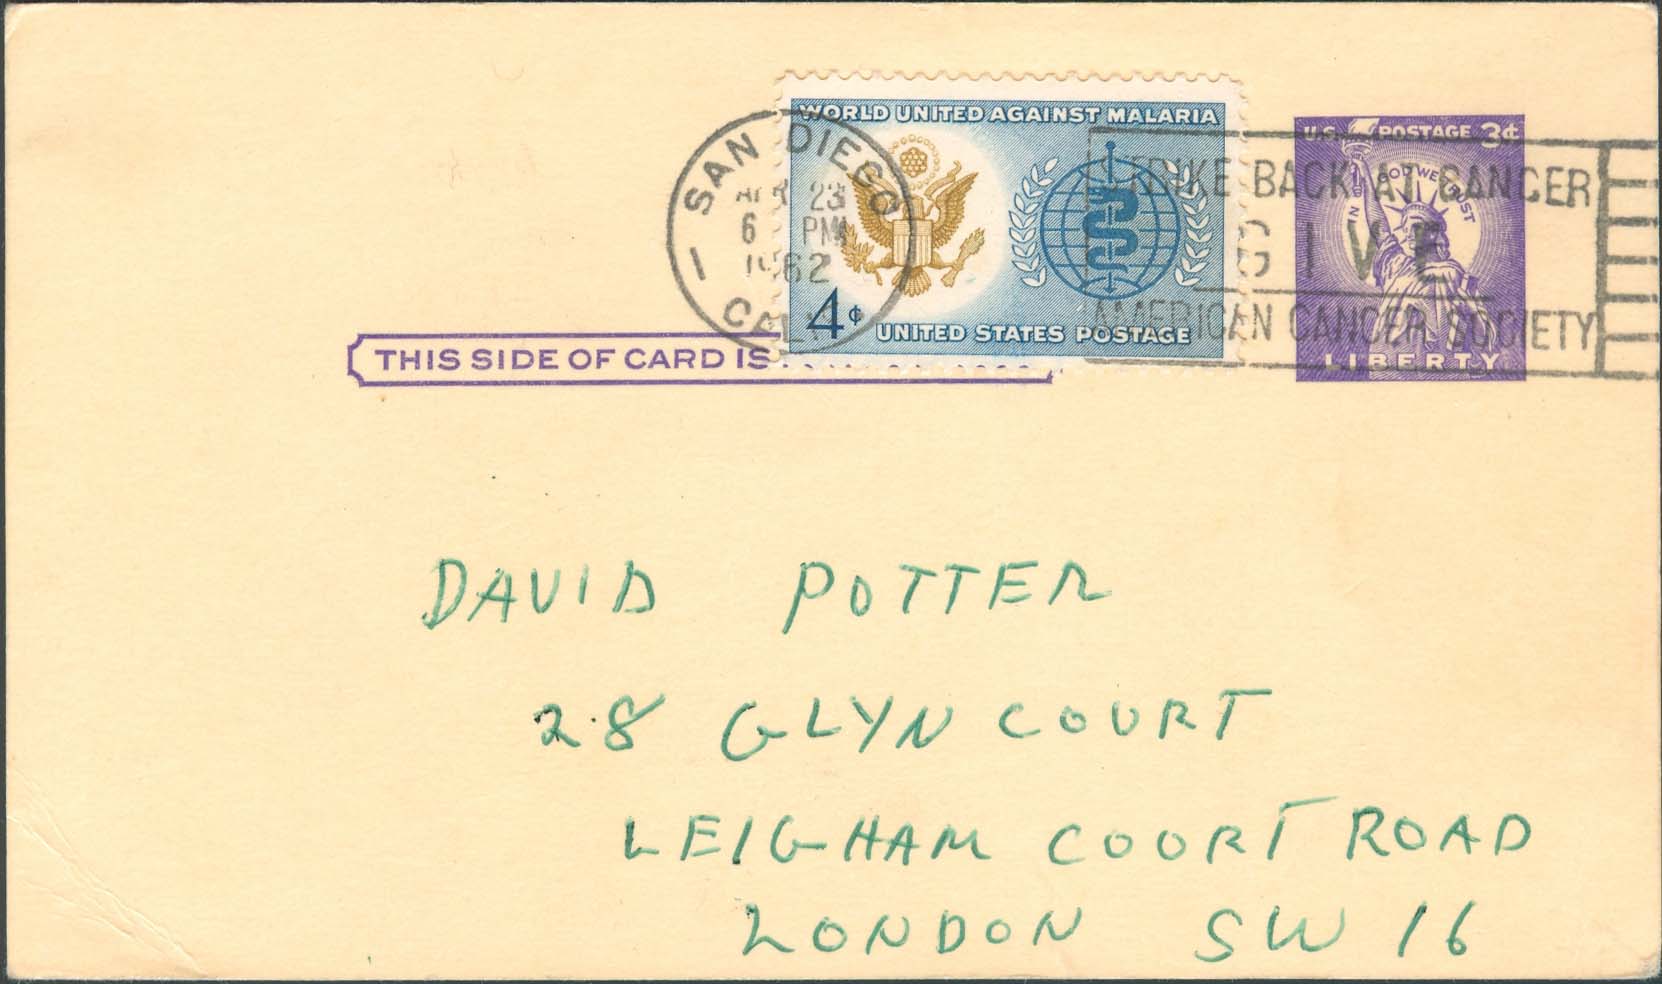 WORLD UNITED AGAINST MALARIA
4¢
UNITED STATES POSTAGE
U.S. POSTAGE 3¢
IN GOD WE TRUST
LIBERTY
SAN DIEGO
APR 23
6 PM
1962
CALIF
STRIKE BACK AT CANCER
GIVE
AMERICAN CANCER SOCIETY
THIS SIDE OF CARD IS
DAVID POTTER
28 GLYN COURT
LEIGHAM COURT ROAD
LONDON SW 16